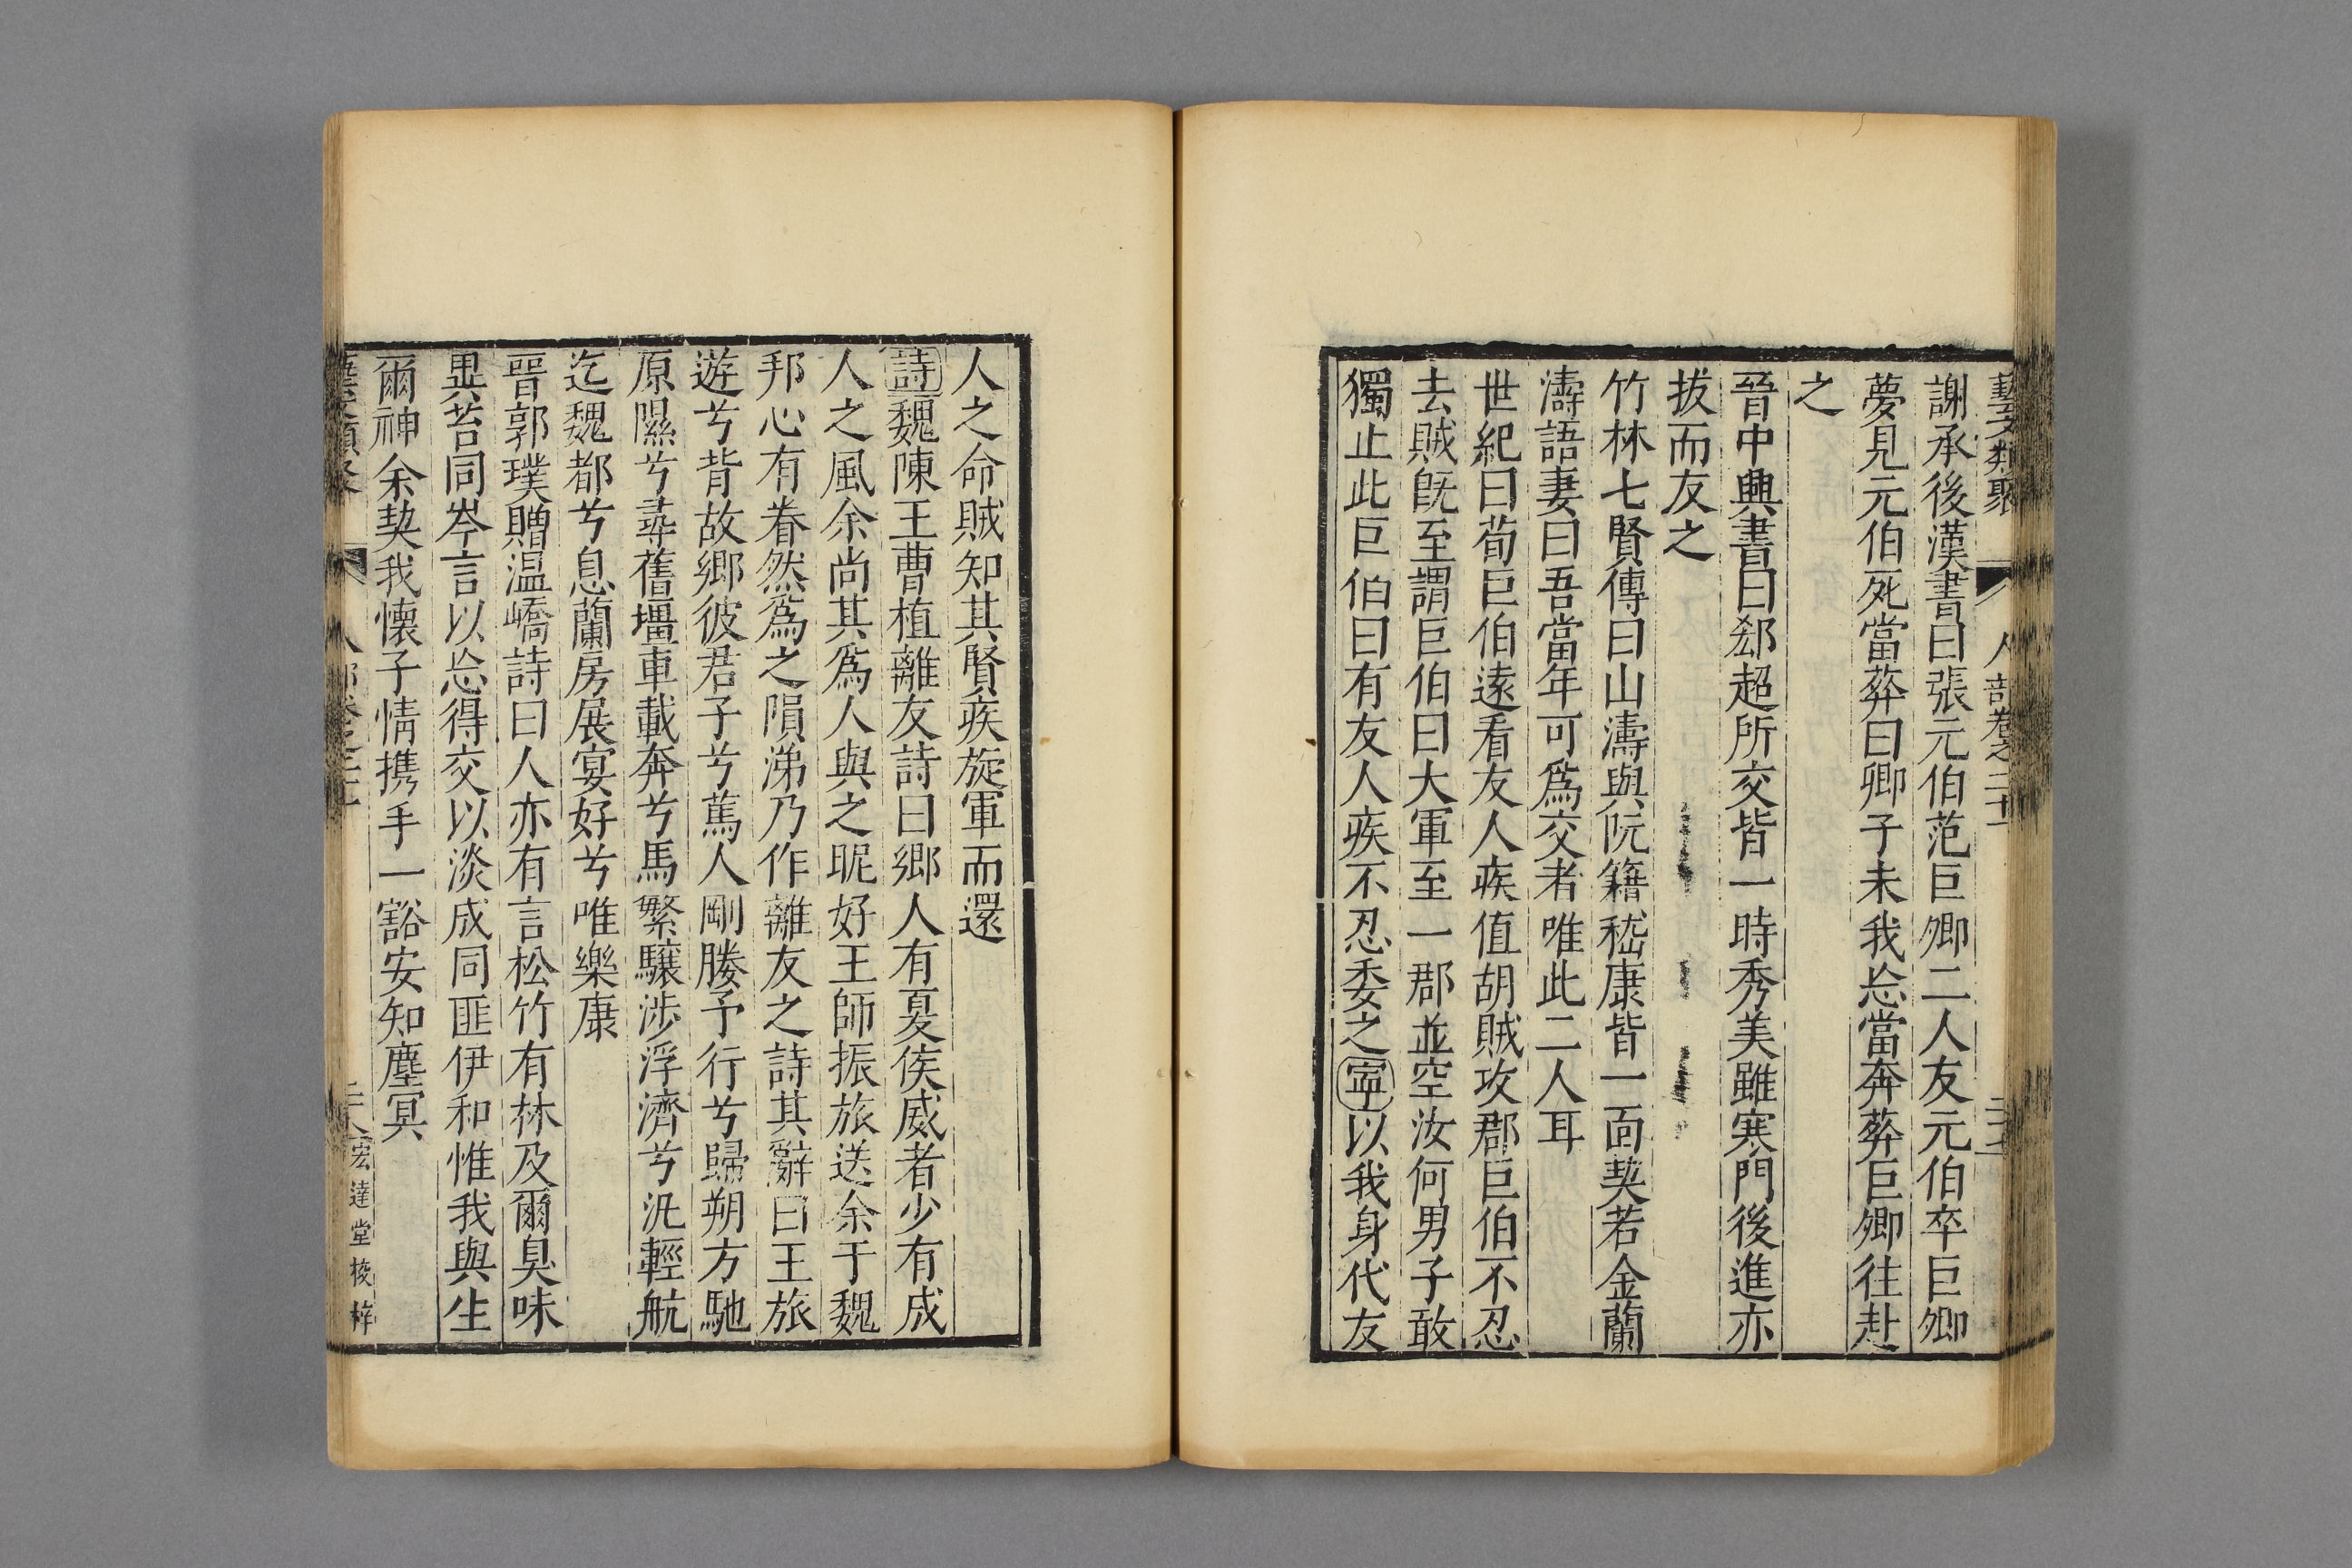 藝文類聚 人部卷之二十一
謝承後漢書曰張元伯范巨卿二人友元伯卒巨卿
夢見元伯死當葬曰卿子未我忘當奔葬巨卿往赴
之
晉中興書曰郄超所交皆一時秀美雖寒門後進亦
拔而友之
竹林七賢傳曰山濤與阮籍嵇康皆一面契若金蘭
濤語妻曰吾當年可爲交者唯此二人耳
世紀曰荀巨伯遠看友人疾值胡賊攻郡巨伯不忍
去賊旣至謂巨伯曰大軍至一郡並空汝何男子敢
獨止此巨伯曰有友人疾不忍委之寧以我身代友
人之命賊知其賢疾旋軍而還
詩魏陳王曹植離友詩曰鄉人有夏侯威者少有成
人之風余尚其爲人與之昵好王師振旅送余于魏
邦心有眷然爲之隕涕乃作離友之詩其辭曰王旅
遊兮背故鄉彼君子兮篤人剛媵予行兮歸朔方馳
原隰兮尋舊壃車載奔兮馬繁驤涉浮濟兮汎輕航
迄魏都兮息蘭房展宴好兮唯樂康
晉郭璞贈温嶠詩曰人亦有言松竹有林及爾臭味
異苔同岑言以忘得交以淡成同匪伊和惟我與生
爾神余契我懷子情携手一豁安知塵冥
宏達堂校梓